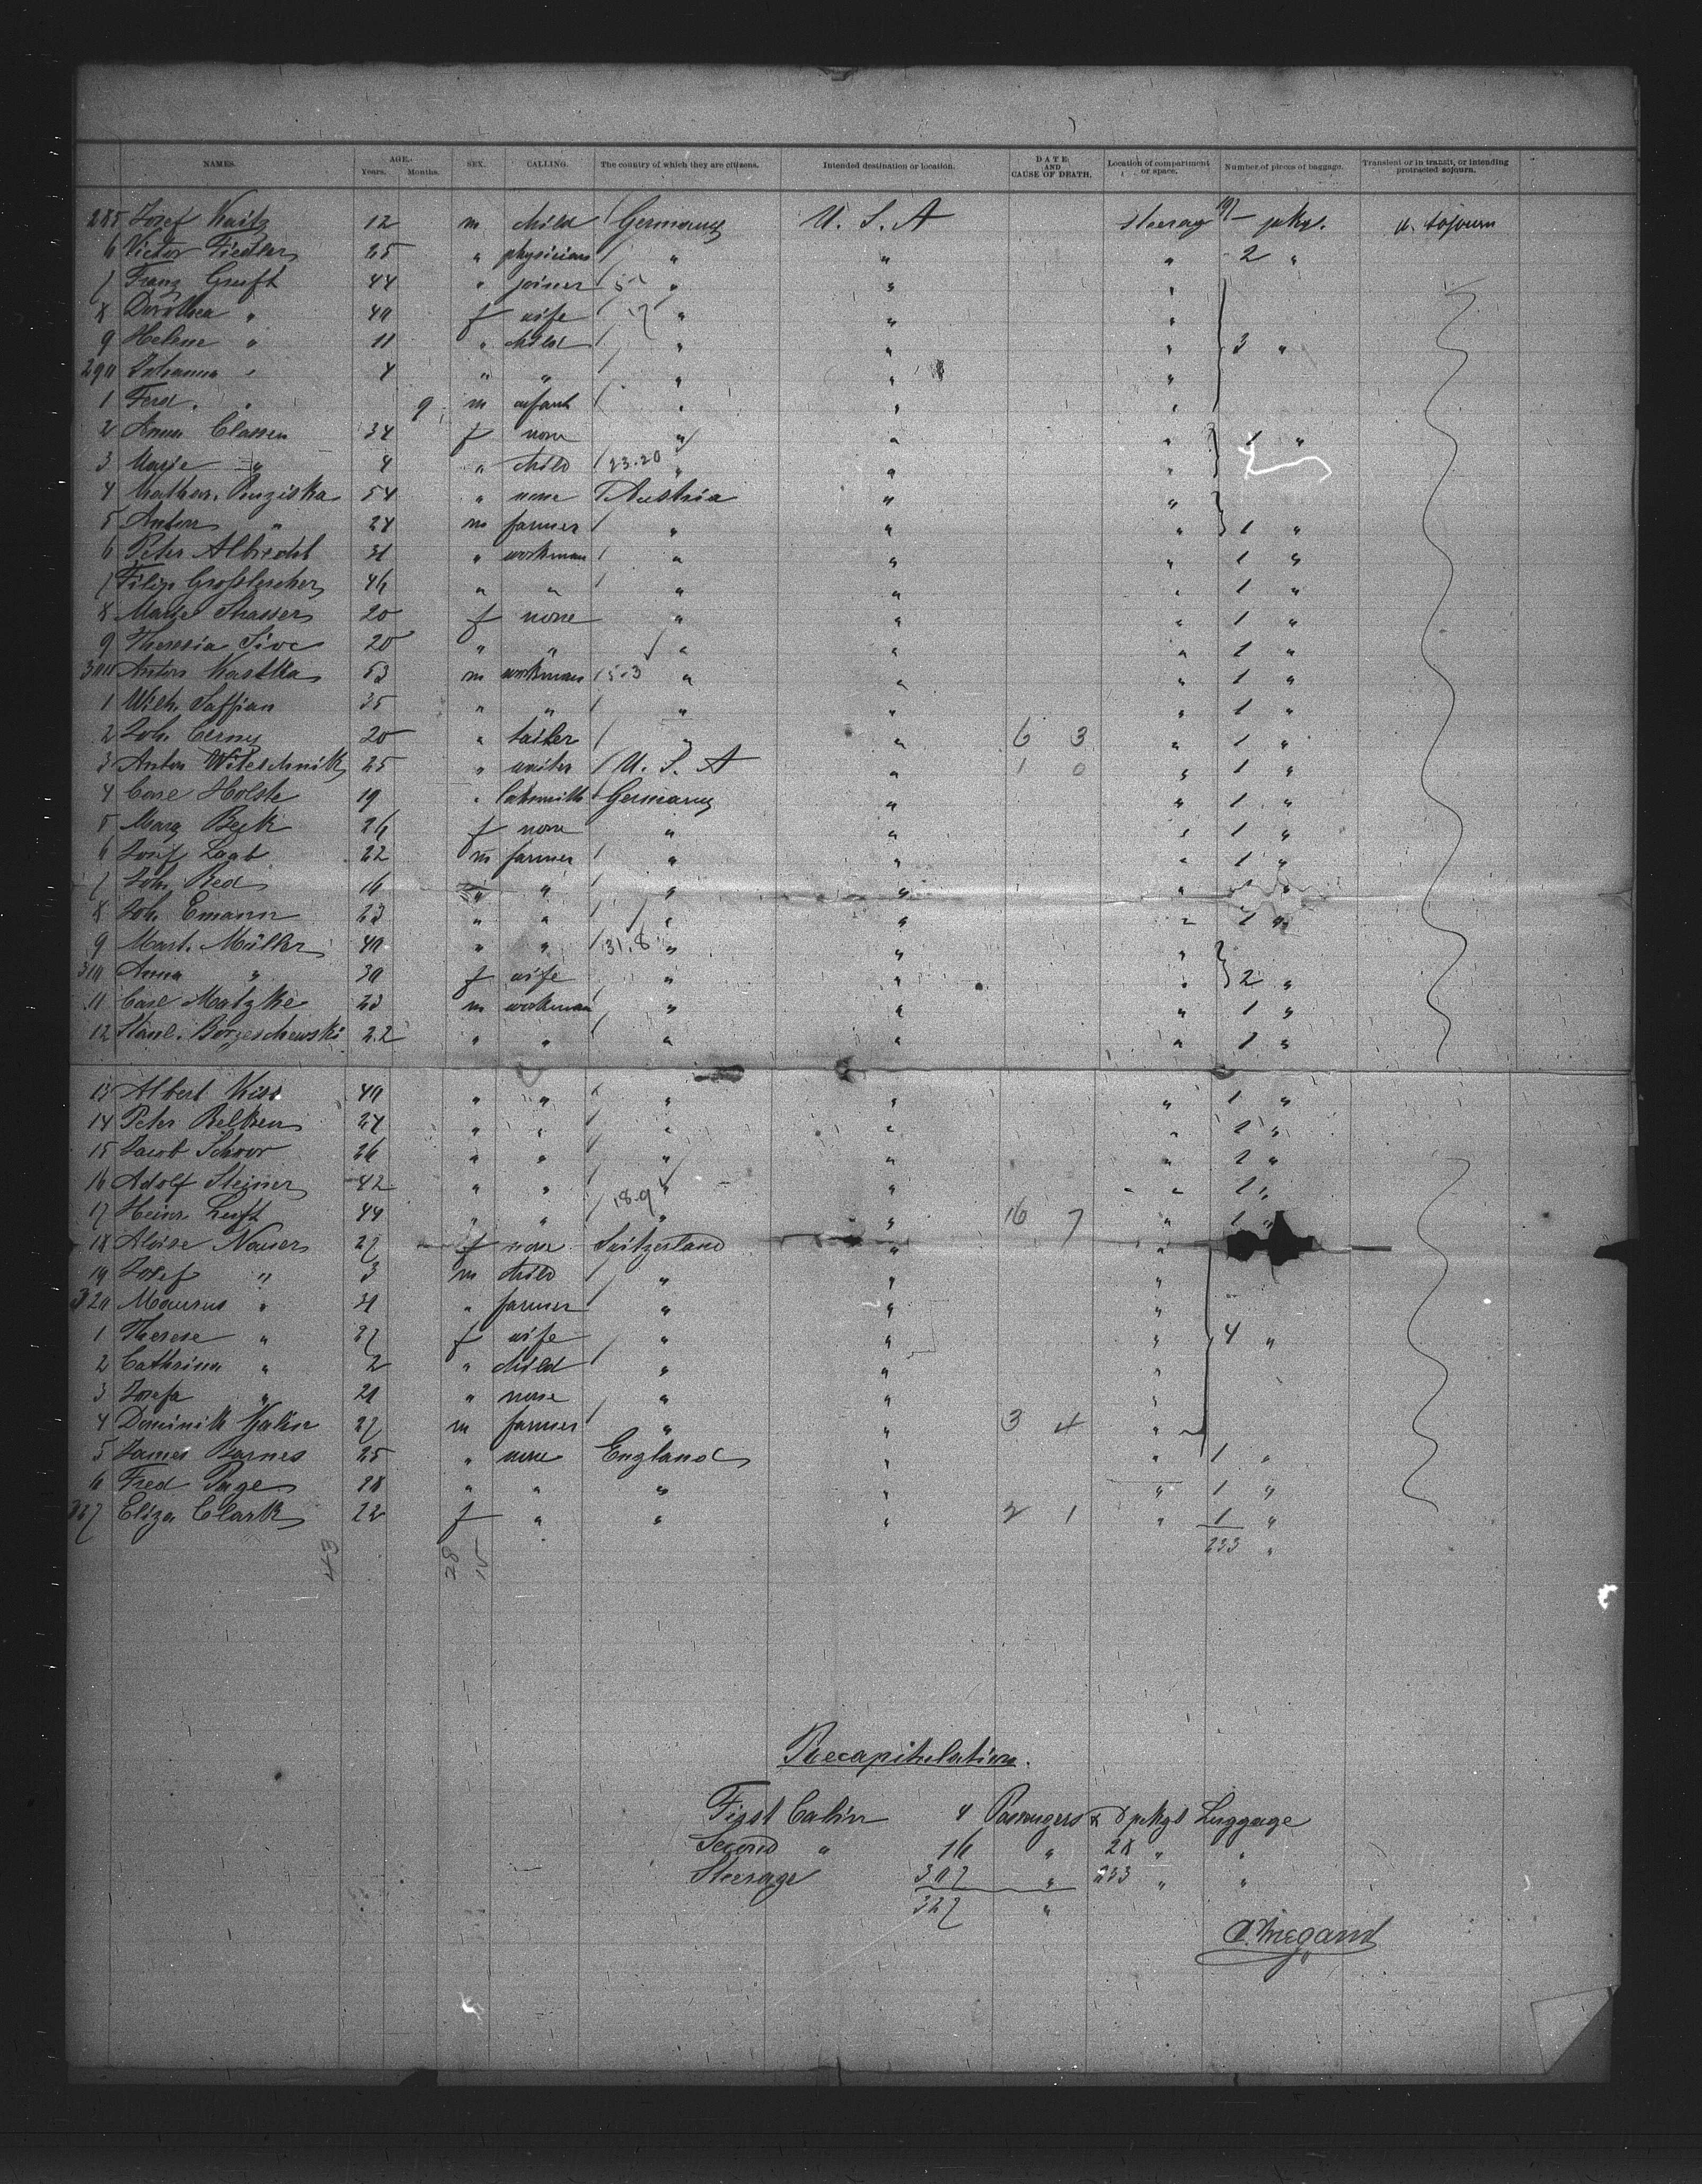 NAMES. AGE. Years. Months. SEX. CALLING. The country of which they are citizens. Intended destination or location. DATE AND CAUSE OF DEATH. Location of compartment or space. Number of pieces of baggage. Transient or in transit, or intending protracted sojourn.
285 Josef Waitz 12 m child Germany U. S. A steerag 197 pkg. sojourn
6 Victor Fiedler 25 " physician " " " 2 "
7 Franz 44 " joiner " " "
8 Dorothea " 40 f wife " " "
9 Helene " 11 " child " " " 3 "
290 Johanna " 4 " " " " "
1 Ferd. " 9 m infant " " "
2 Anna Classen 34 f none " " " 1 "
3 Marie " 4 " child 23.20 " " "
4 Kathar. Ruziska 54 " none Austria " "
5 Anton " 24 m farmer " " " 1 "
6 Peter Albrecht 31 " workman " " " 1 "
7 Filip 46 " " " " " 1 "
8 Marie 20 f none " " " 1 "
9 Theresia Sivc 20 " " " " " 1 "
300 Anton Kastka 53 m workman 5.3 " " " 1 "
1 Wilh. Saffian 35 " " " " " 1 "
2 Joh. Cerny 20 " tailer " " 6 3 " 1 "
3 Anton Witeschnik 25 " waiter U. S. A " 1 0 " 1 "
4 Carl Holste 19 " locksmith Germany " " 1 "
5 Marg Beck 26 f none " " " 1 "
6 Josef Laab 22 m farmer " " " 1 "
7 Joh. Red 16 " " " " " 1 "
8 Joh. Emann 23 " " " " " 1 "
9 Mart. Müller 40 " " 31.8 " " "
310 Anna " 30 f wife " " " 2 "
11 Carl Matzke 23 m workman " " " 1 "
12 Stanl. Borzeschewski 22 " " " " " 1 "
13 Albert Kiss 40 " " " " " 1 "
14 Peter Relken 24 " " " " " 1 "
15 Jacob Schorr 26 " " " " " 1 "
16 Adolf Steiner 42 " " " " " 1 "
17 Heinr. Luft 44 " " 18.9 " " 16 7 " 1 "
18 Aloise Nauer 27 f none Switzerland " "
19 Josef " 3 m child " " "
320 Maurus " 31 " farmer " " "
1 Therese " 27 f wife " " " 4 "
2 Cathrina " 2 " child " " "
3 Josefa " 21 " none " " "
4 Dominik Kalin 27 m farmer " " 3 4 "
5 James Barnes 25 " none England " " 1 "
6 Fred Page 18 " " " " " 1 "
327 Eliza Clark 22 f " " " 2 1 " 1 "
43 28 15 233 "
Recapitulation.
First Cabin 4 Passengers & 8 pckgs Luggage
Second " 16 " 28 " "
Steerage 307 " 233 " "
327 "